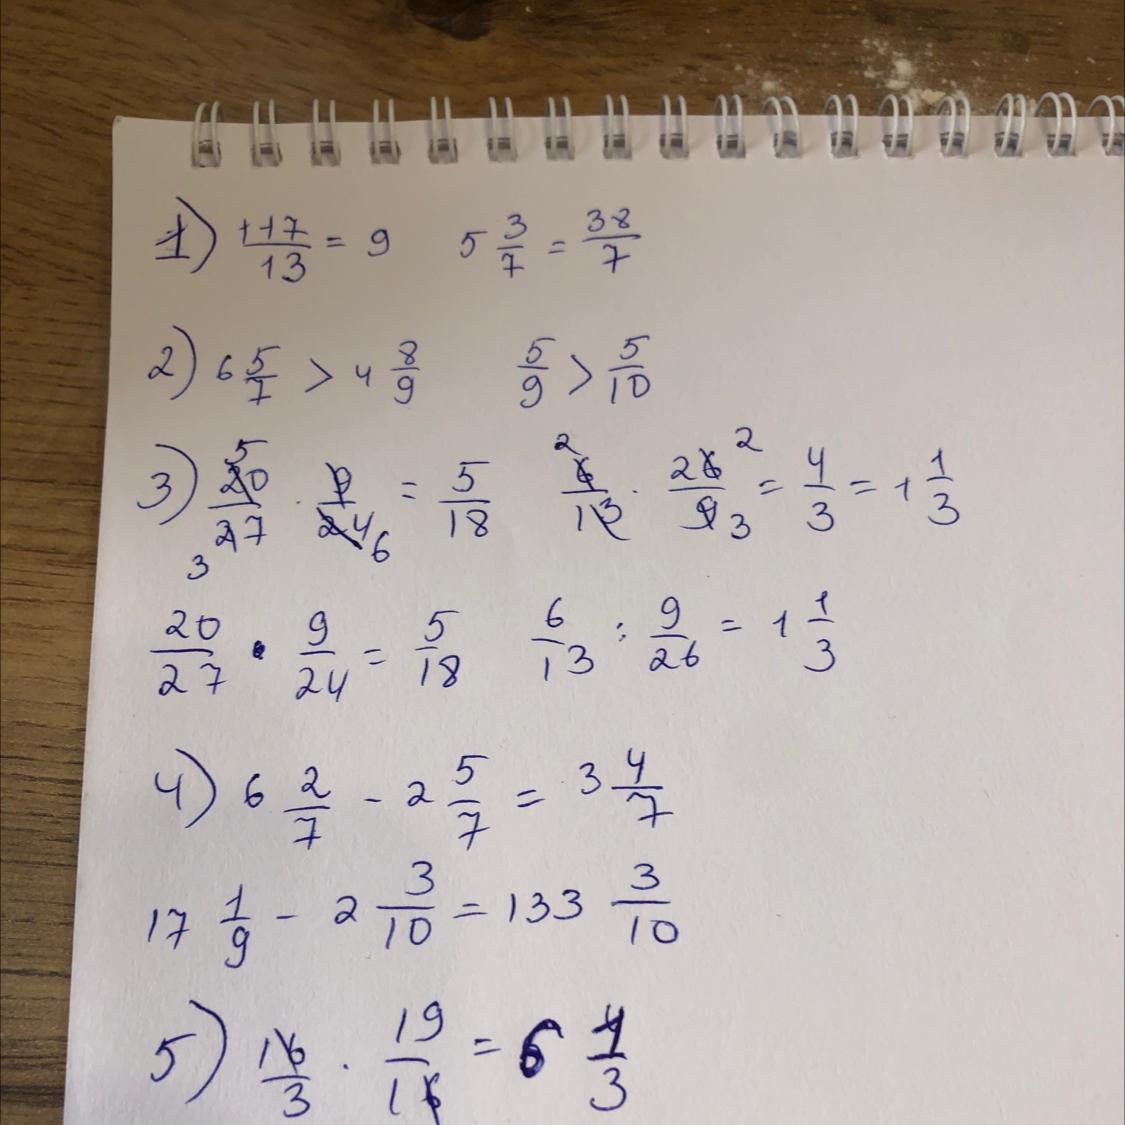 1) 117/13 = 9 5 3/7 = 38/7
2) 6 5/7 > 4 8/9 5/9 > 5/10
3) 20/27 · 9/24 = 5/18 6/13 · 26/9 = 4/3 = 1 1/3
20/27 · 9/24 = 5/18 6/13 : 9/26 = 1 1/3
4) 6 2/7 - 2 5/7 = 3 4/7
17 1/9 - 2 3/10 = 133 3/10
5) 16/3 · 19/16 = 6 1/3